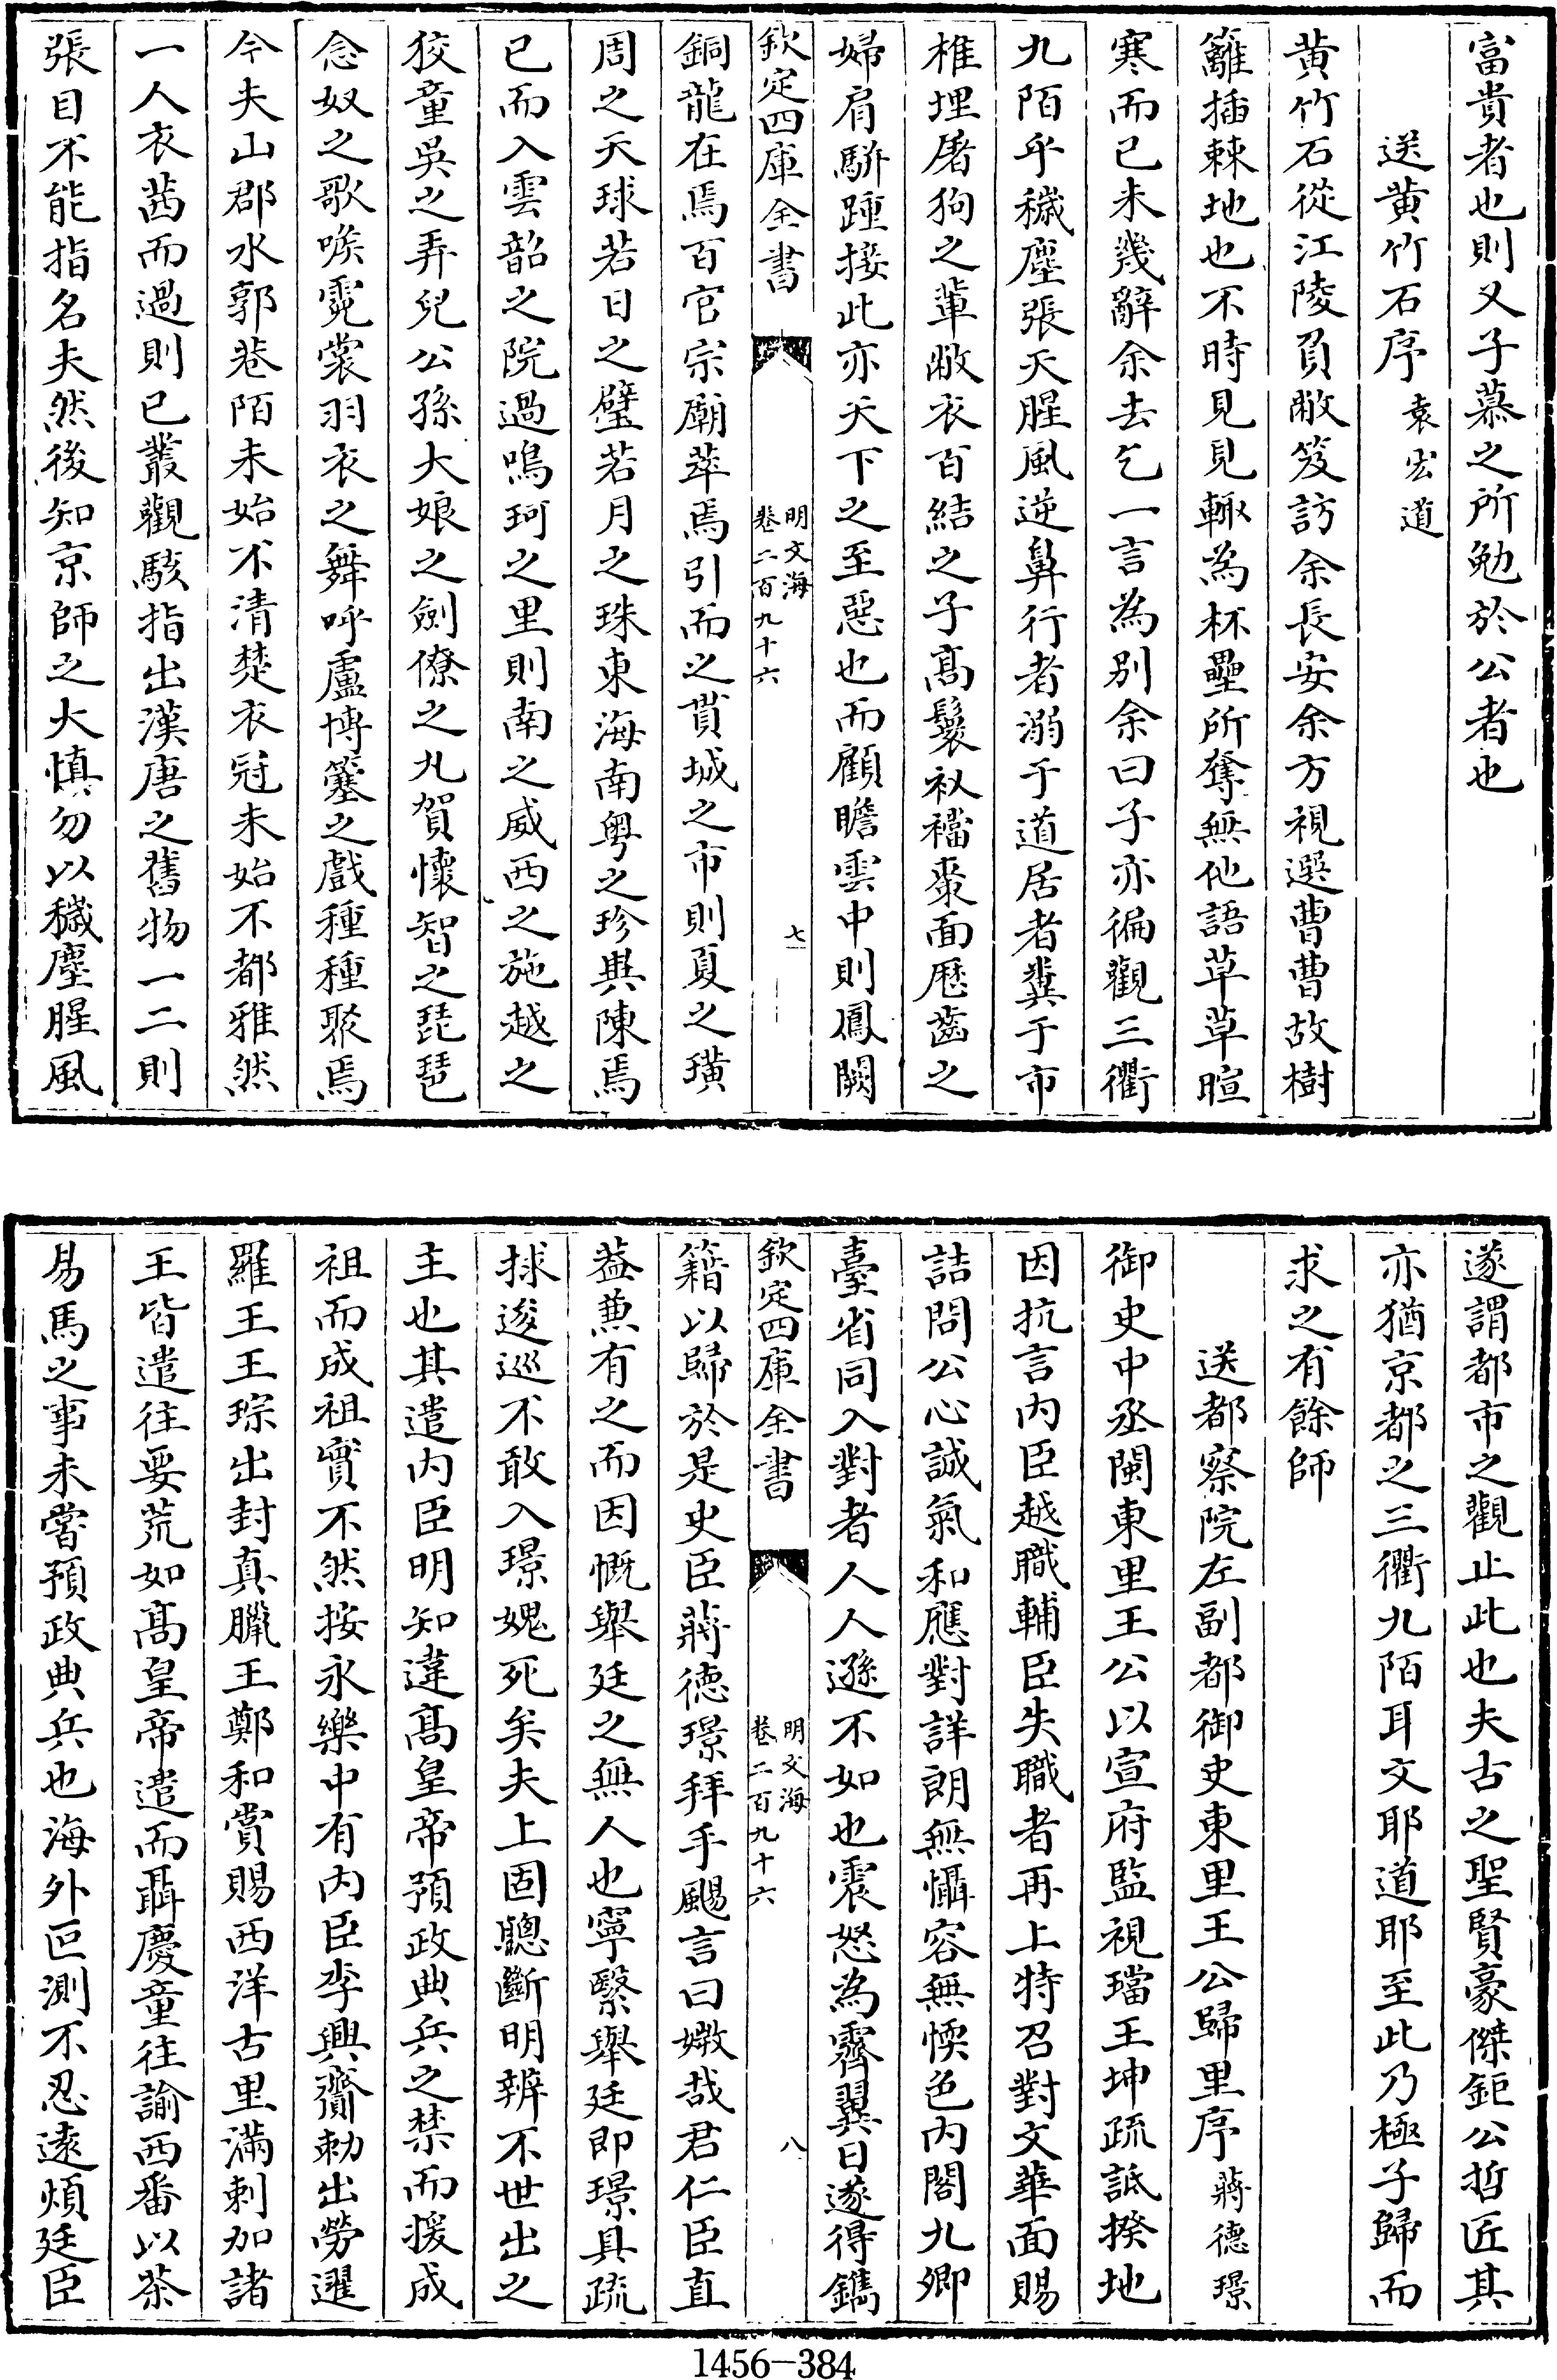 富貴者也則又子慕之所勉於公者也
送黄竹石序 袁宏道
黄竹石從江陵負敝笈訪余長安余方視選曹曹故樹
籬插棘地也不時見見輙為杯壘所奪無他語草草暄
寒而已未幾辭余去乞一言為别余曰子亦徧觀三衢
九陌乎穢塵張天腥風逆鼻行者溺于道居者糞于市
椎埋屠狗之輩敝衣百結之子髙鬟衩襠棗面歴齒之
婦肩駢踵接此亦天下之至惡也而顧瞻雲中則鳳闕
欽定四庫全書
明文海
卷二百九十六
七
銅龍在焉百官宗廟萃焉引而之貫城之市則夏之璜
周之天球若日之璧若月之珠東海南粤之珍與陳焉
已而入雲韶之院過鳴珂之里則南之威西之施越之
狡童吳之弄兒公孫大娘之劍僚之丸賀懷智之琵琶
念奴之歌喉霓裳羽衣之舞呼盧博簺之戲種種聚焉
今夫山郡水郭巷陌未始不清楚衣冠未始不都雅然
一人衣茜而過則已叢觀駭指出漢唐之舊物一二則
張目不能指名夫然後知京師之大慎勿以穢塵腥風
遂謂都市之觀止此也夫古之聖賢豪傑鉅公哲匠其
亦猶京都之三衢九陌耳文耶道耶至此乃極子歸而
求之有餘師
送都察院左副都御史東里王公歸里序 蔣德璟
御史中丞閩東里王公以宣府監視璫王坤疏詆揆地
因抗言内臣越職輔臣失職者再上特召對文華面賜
詰問公心誠氣和應對詳朗無懾容無愞色内閣九卿
臺省同入對者人人遜不如也震怒為霽翼日遂得鐫
欽定四庫全書
明文海
卷二百九十六
八
籍以歸於是史臣蔣德璟拜手颺言曰媺哉君仁臣直
葢蒹有之而因慨舉廷之無人也寧繄舉廷即璟具疏
捄逡巡不敢入璟媿死矣夫上固聽斷明辨不世出之
主也其遣内臣明知違髙皇帝預政典兵之禁而援成
祖而成祖實不然按永樂中有内臣李興齎勅出勞暹
羅王王琮出封真臘王鄭和賞賜西洋古里滿剌加諸
王皆遣往要荒如髙皇帝遣而聶慶童往諭西番以茶
易馬之事未嘗預政典兵也海外叵測不忍遠煩廷臣
1456-384